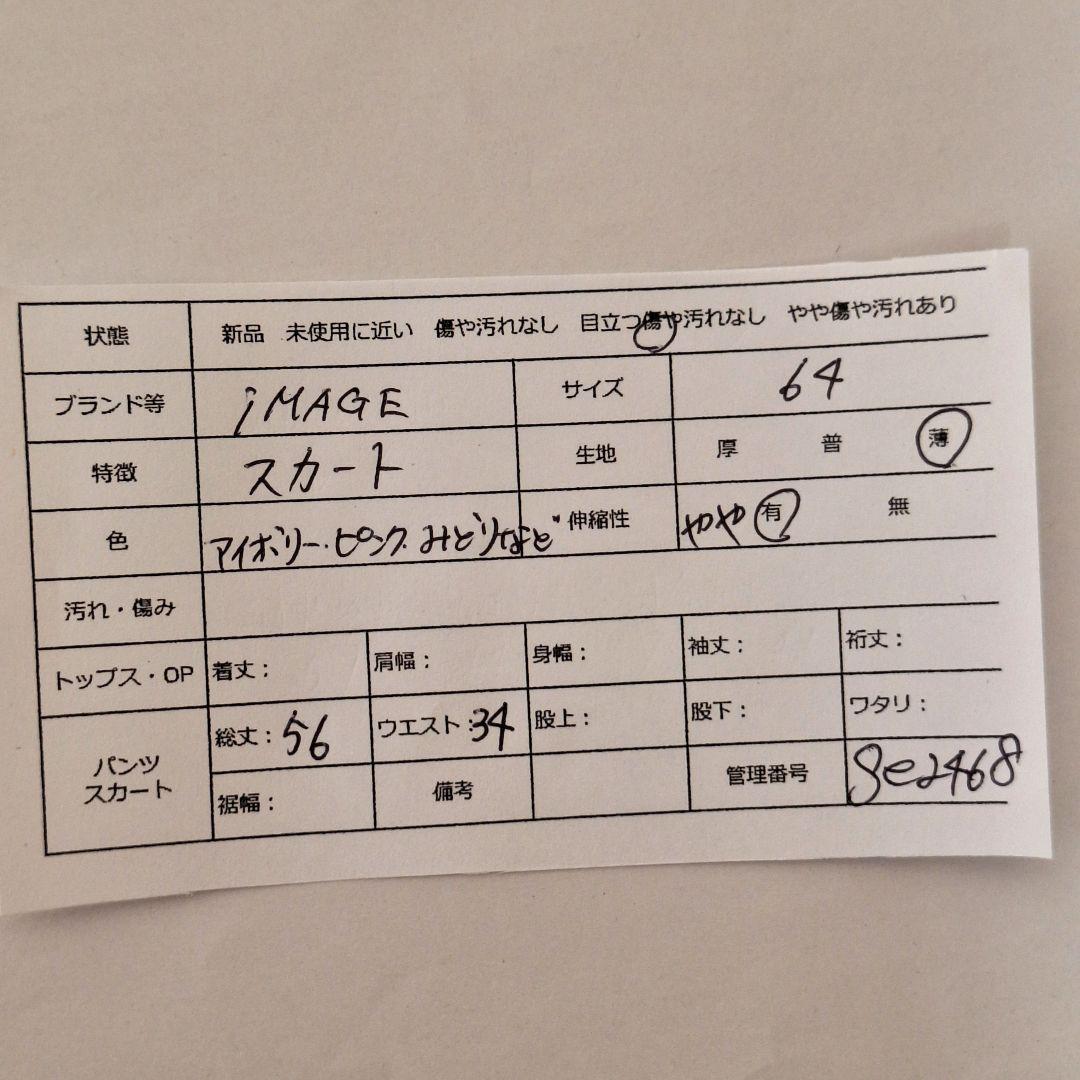 状態 新品 未使用に近い 傷や汚れなし 目立つ傷や汚れなし やや傷や汚れあり
ブランド等 iMAGE サイズ 64
特徴 スカート 生地 厚 普 薄
色 アイボリー・ピンク みどりなど 伸縮性 やや 有 無
汚れ・傷み
トップス・OP 着丈: 肩幅: 身幅: 袖丈: 裄丈:
パンツ スカート 総丈:56 ウエスト:34 股上: 股下: ワタリ:
裾幅: 備考 管理番号 Se2468